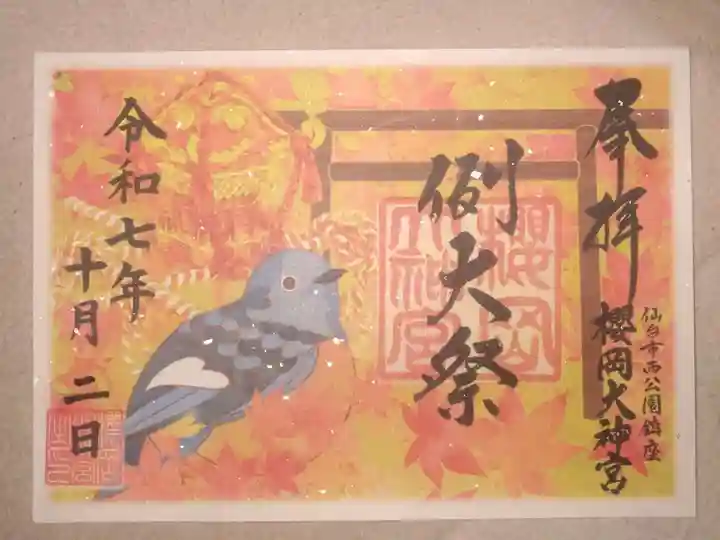 奉拝
櫻岡大神宮
仙台市西公園鎮座
例大祭
櫻岡
大神宮
令和七年
十月二日